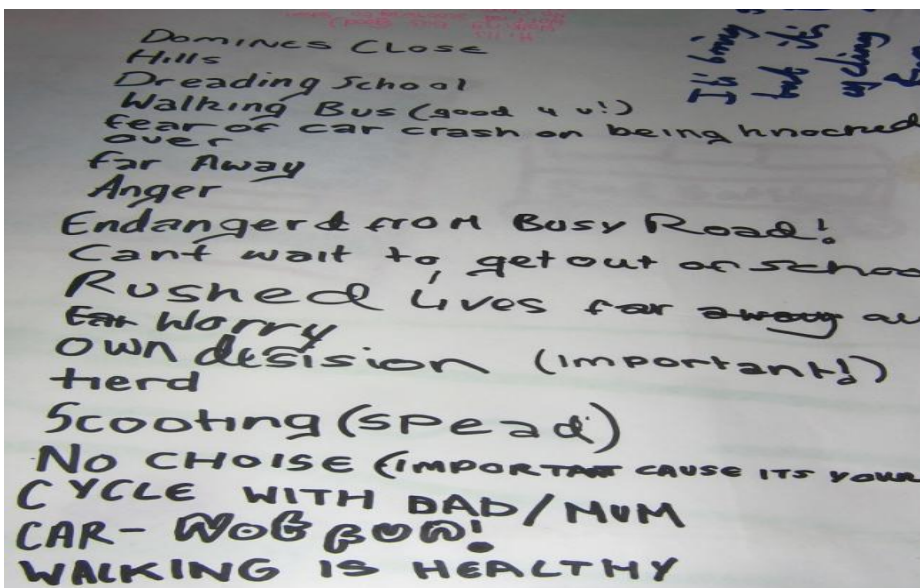 Domines Close
Hills
Dreading School
Walking Bus (good 4 u!)
fear of car crash on being knocked
over
far Away
Anger
Endangerd from Busy Road!
Cant wait to get out of schoo
Rushed lives far away au
Far Worry
own desision (important!)
tierd
Scooting (spead)
NO CHOISE (IMPORTAT CAUSE ITS YOUR
CYCLE WITH DAD/MUM
CAR- NOT FUN!
WALKING IS HEALTHY
It's
but it's
cycling